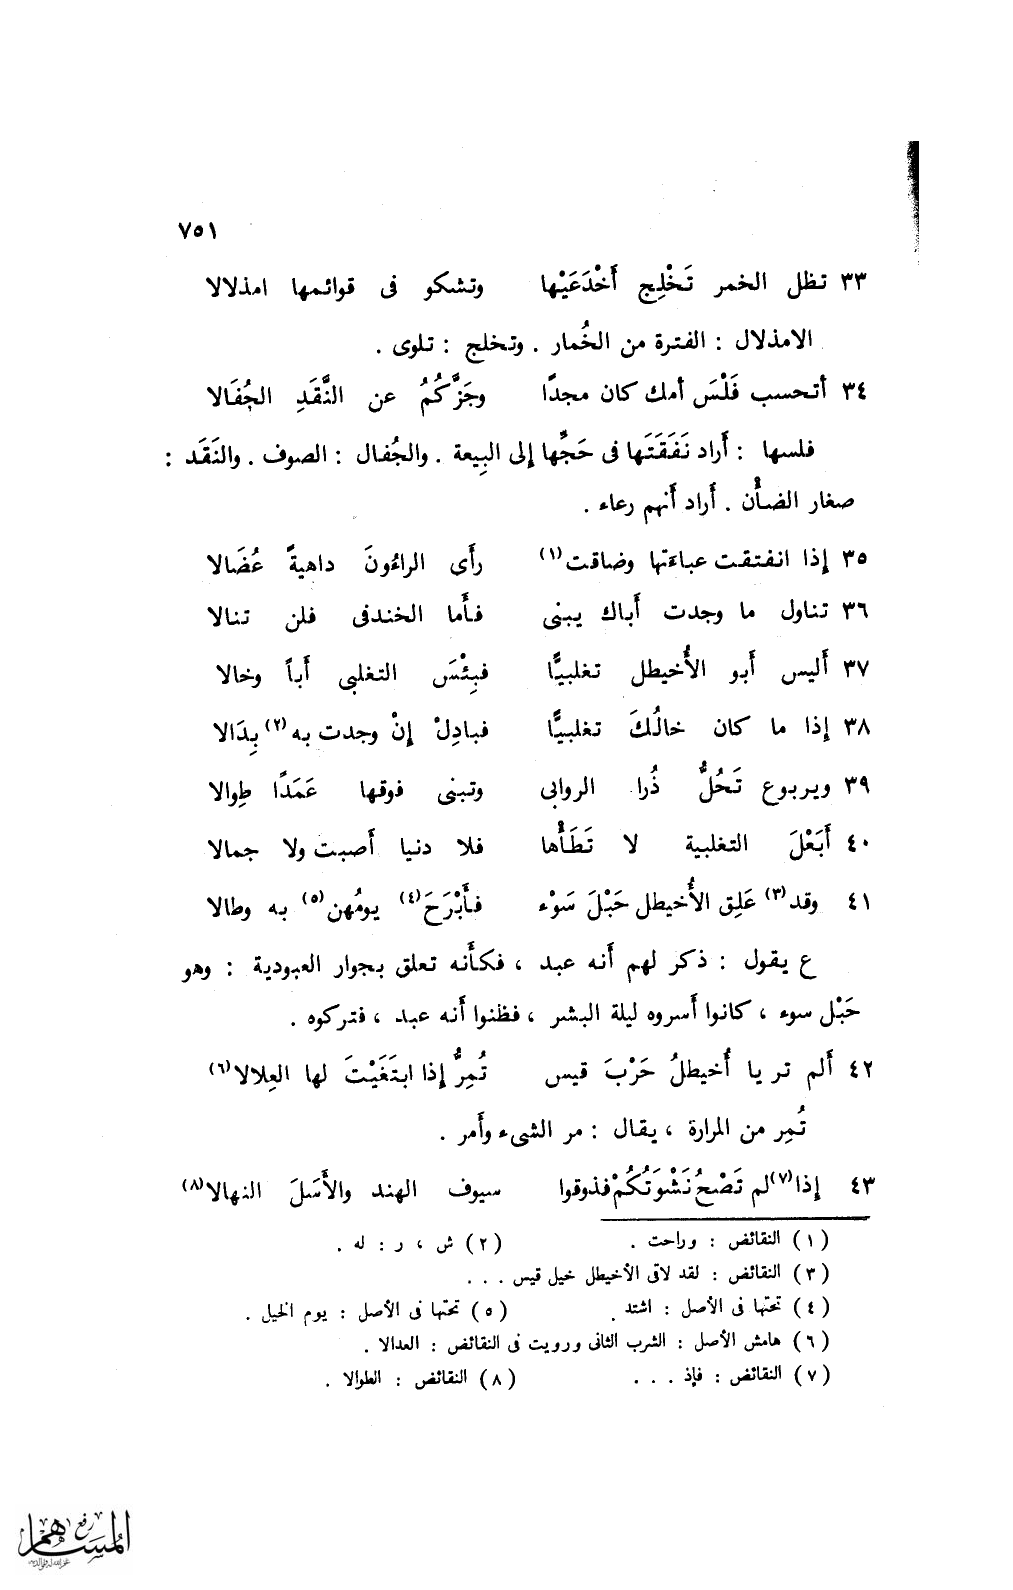 ٧٥١
٣٣ تظل الخمر تَخْلِج أَخْدَعَيْها وتشكو فى قوائمها امذلالا
الامذلال : الفترة من الخُمار . وتخلج : تلوى .
٣٤ أتحسب فَلْسَ أمك كان مجدًا وجَزَّكُمُ عن النَّقَدِ الجُفَالا
فلسها : أَراد نَفَقَتَها فى حَجِّها إلى البِيعة . والجُفال : الصوف . والنَقَد :
صغار الضأْن . أَراد أَنهم رعاء .
٣٥ إذا انفتقت عباءَتها وضاقت(١) رأَى الراءُونَ داهيةً عُضَالا
٣٦ تناول ما وجدت أَباك يبنى فأَما الخندفى فلن تنالا
٣٧ أَليس أَبو الأُخيطل تغلبيًّا فبِئْسَ التغلبى أَباً وخالا
٣٨ إذا ما كان خالُكَ تغلبيًّا فبادِلْ إنْ وجدت به(٢) بِدَالا
٣٩ ويربوع تَحُلُّ ذُرا الروابى وتبنى فوقها عَمَدًا طِوالا
٤٠ أَبَعْلَ التغلبية لا تَطَأْها فلا دنيا أَصبت ولا جمالا
٤١ وقد(٣) عَلِق الأُخيطل حَبْلَ سَوْء فأَبْرَحَ(٤) يومُهن(٥) به وطالا
ع يقول : ذكر لهم أَنه عبد ، فكأَنه تعلق بجوار العبودية : وهو
حَبْل سوء ، كانوا أَسروه ليلة البشر ، فظنوا أَنه عبد ، فتركوه .
٤٢ أَلم تر يا أُخيطلُ حَرْبَ قيس تُمِرُّ إذا ابتَغَيْتَ لها العِلالا(٦)
تُمِر من المرارة ، يقال : مر الشىء وأَمر .
٤٣ إذا(٧)لم تَصْحُ نَشْوَتُكُمْ فذوقوا سيوف الهند والأَسَلَ النهالا(٨)
(١) النقائض : وراحت . (٢) ش ، ر : له .
(٣) النقائض : لقد لاقى الأخيطل خيل قيس . . .
(٤) تحتها فى الأصل : اشتد . (٥) تحتها فى الأصل : يوم الخيل .
(٦) هامش الأصل : الشرب الثانى ورويت فى النقائض : العدالا .
(٧) النقائض : فإذ . . . (٨) النقائض : الطوالا .
رفع
المساهم